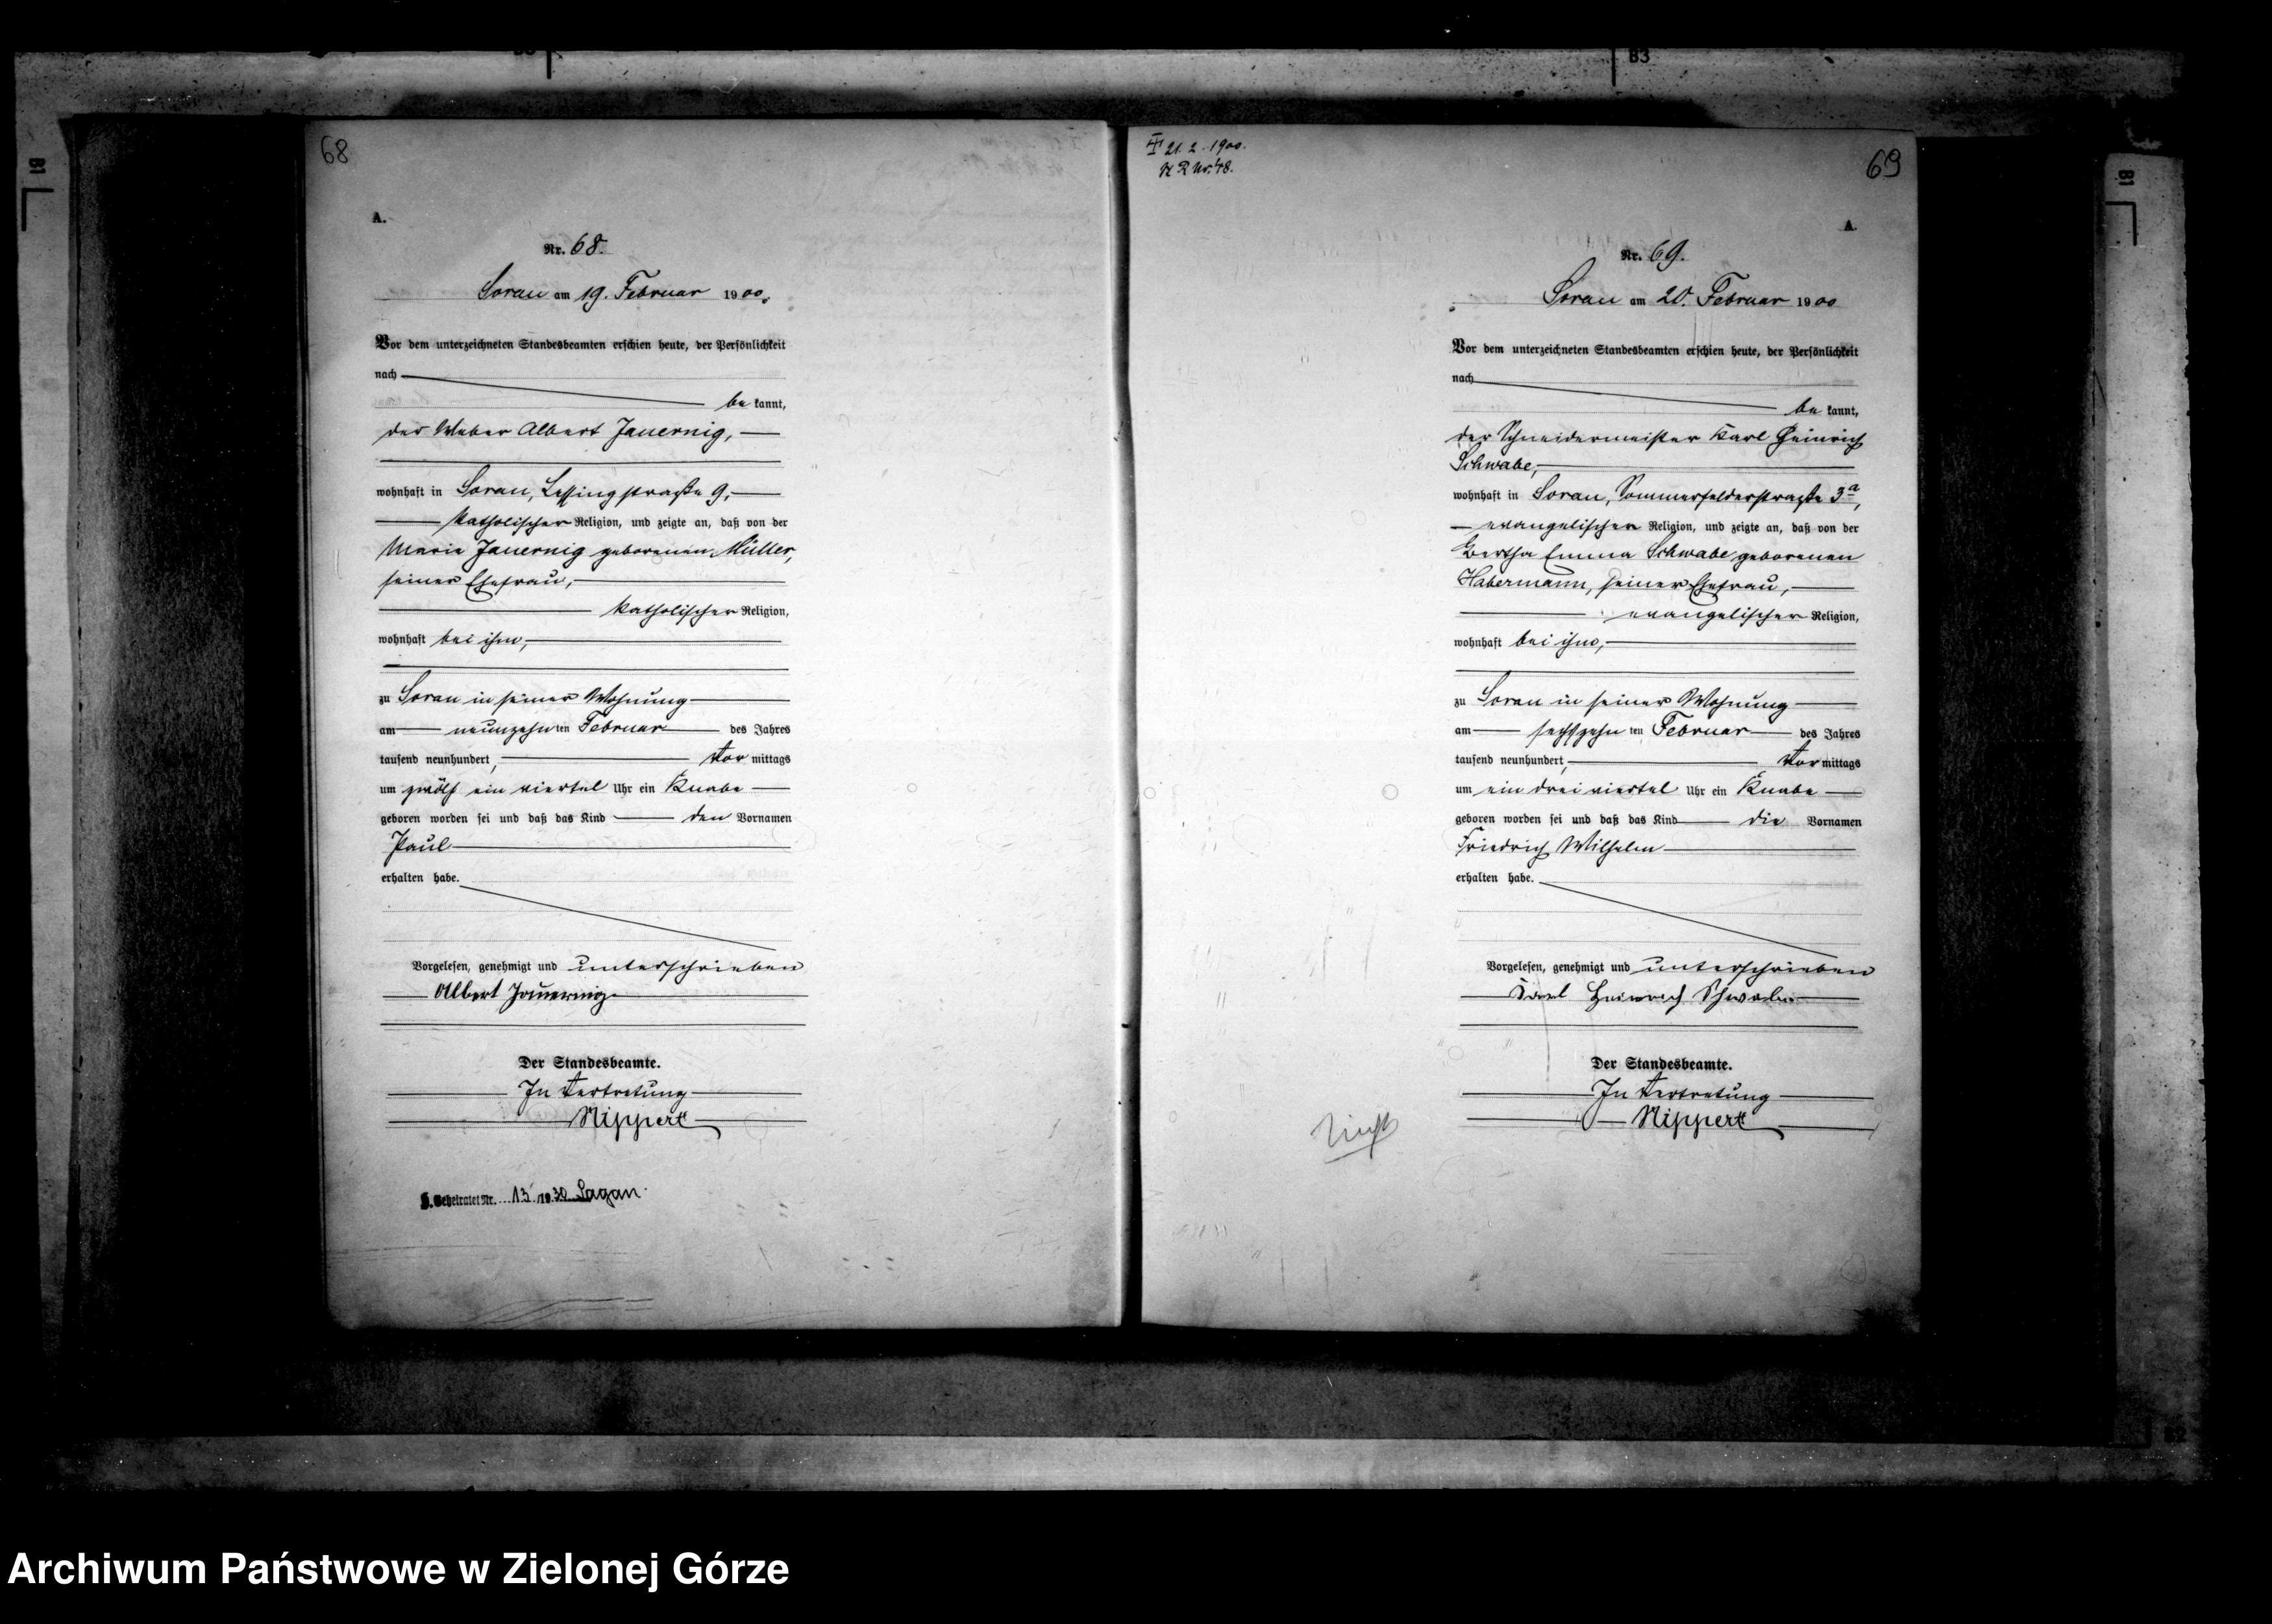 B3
B1
B1
68
A.
Nr. 68.
Sorau am 19. Februar 1900.
Vor dem unterzeichneten Standesbeamten erschien heute, der Persönlichkeit
nach
be kannt,
der Weber Albert Jauernig,
wohnhaft in Sorau, Lessingstraße 9,
katholischer Religion, und zeigte an, daß von der
Marie Jauernig geborenen Müller,
seiner Ehefrau,
katholischer Religion,
wohnhaft bei ihm,
zu Sorau in seiner Wohnung
am neunzehn ten Februar des Jahres
tausend neunhundert, Vor mittags
um zwölf ein viertel Uhr ein Knabe
geboren worden sei und daß das Kind den Vornamen
Paul
erhalten habe.
Vorgelesen, genehmigt und unterschrieben
Albert Jauernig
Der Standesbeamte.
In Vertretung
Nippert
Geheiratet Nr. 13 1930 Sagan.
21.2.1900.
Nr. 48.
69
A.
Nr. 69.
Sorau am 20. Februar 1900
Vor dem unterzeichneten Standesbeamten erschien heute, der Persönlichkeit
nach
be kannt,
der Schneidermeister Karl Heinrich
Schwabe,
wohnhaft in Sorau, Sommerfelderstraße 3a,
evangelischer Religion, und zeigte an, daß von der
Bertha Emma Schwabe geborenen
Habermann, seiner Ehefrau,
evangelischer Religion,
wohnhaft bei ihm,
zu Sorau in seiner Wohnung
am sechszehn ten Februar des Jahres
tausend neunhundert, Vor mittags
um ein drei viertel Uhr ein Knabe
geboren worden sei und daß das Kind die Vornamen
Friedrich Wilhelm
erhalten habe.
Vorgelesen, genehmigt und unterschrieben
Karl Heinrich Schwabe
Der Standesbeamte.
In Vertretung
Nippert
Archiwum Państwowe w Zielonej Górze